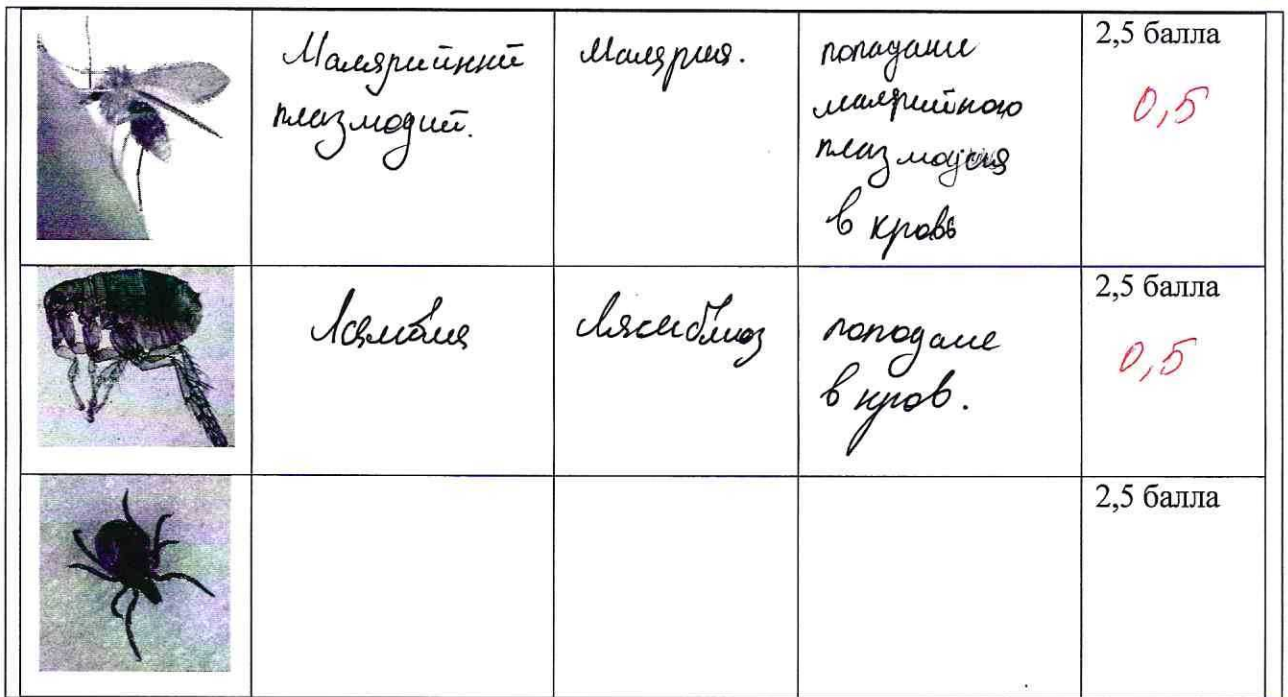 Малярийний
плазмодий.
Малярия.
попадание
малярийного
плазмодия
в кровь
2,5 балла
0,5
Лямблия
Лямблиоз
поподание
в кров.
2,5 балла
0,5
2,5 балла